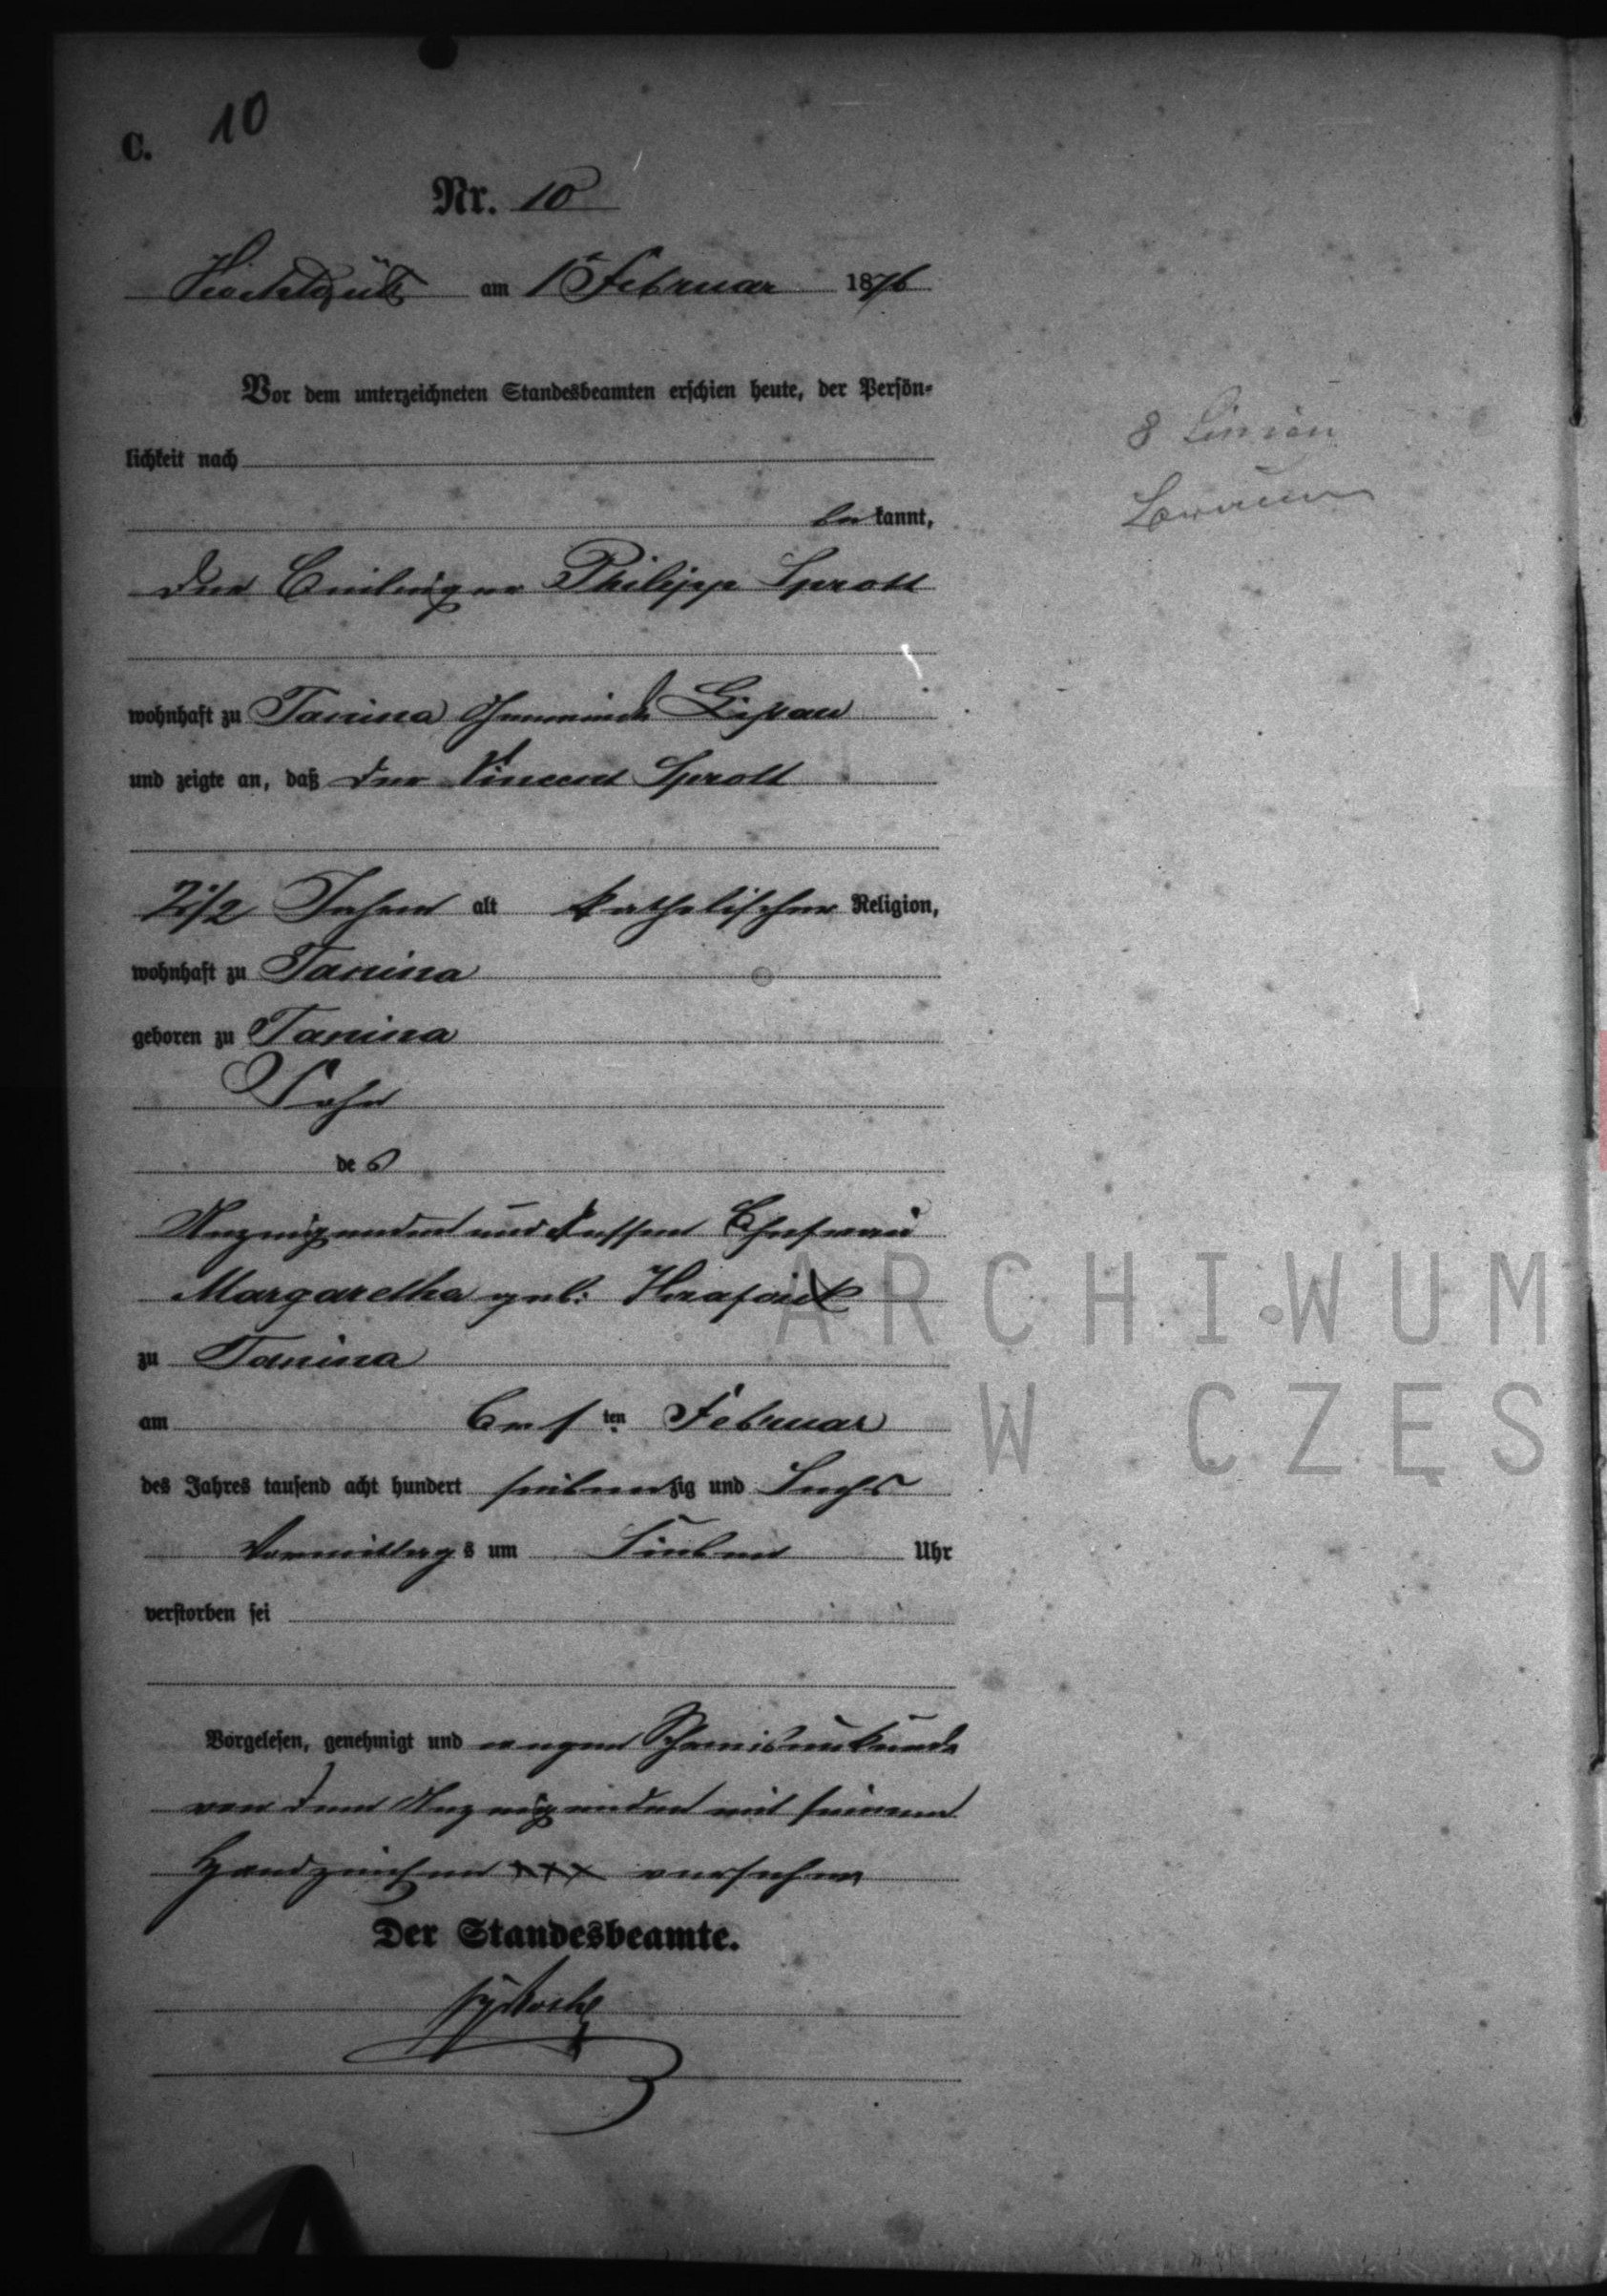 C. 10
Nr. 10
am 1t Februar 1876
Vor dem unterzeichneten Standesbeamten erschien heute, der Persön-
lichkeit nach
bekannt,
Der Einlieger Philipp Sprott
wohnhaft zu Tanina Gemeinde Lipau
und zeigte an, daß der Vincent Sprott
7 1/2 Jahre alt katholischer Religion,
wohnhaft zu Tanina
geboren zu Tanina
Sohn
des
Anzeigenden und dessen Ehefrau
Margaretha geb:
zu Tanina
am Ersten Februar
des Jahres tausend acht hundert siebenzig und Sechs
Vormittags um Sieben Uhr
verstorben sei
Vorgelesen, genehmigt und wegen Schreibunkunde
von dem Anzeigenden mit seinem
Handzeichen +++ versehen
Der Standesbeamte.
8 Linien
ARCHIWUM
W CZĘS